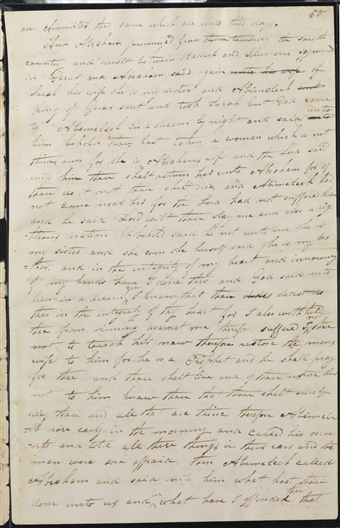 55.
are Amonites the same which are unto this day.
And Abraham journied from thence towards the south
country and dwelt between Kadesh and Shur and sojourned
in Gerar and Abraham said again unto his wife of
Sarah his wife she is my sister and Abimelech sent
king of Gerar sent and took Sarah but God came
to Abimelech in a dream by night and said unto
him behold thou hast taken a woman which is not
thine own for she is Abrahams wife and the Lord said
unto him thou shalt return her unto Abraham for if
thou do it not thou shalt die and Abimelech had
not come near her for the Lord had not suffered him
and he said Lord wilt thou slay me and also a rig
hteous nation behold said he not unto me she is
my sister and she even she herself said he is my bro
ther and in the integrity of my heart and innocency
of my hands have I done this and God said unto
him in a dream yea I know that thou didst do
this in the integrity of thy heart for I also withheld
thee from sinning against me therefore suffered I thee
not to touch her now therefore restore the mans
wife to him for he is a Prophet and he shall pray
for thee and thou shalt live and if thou restore her
not to him know thou that thou shalt surely
die thou and all that are thine therefore Abimele
ch rose early in the morning and called his serv
ants and told all these things in their ears and the
men were sore afraid then Abimelech called
Abraham and said unto him what hast thou
done unto us and in what have I offended thee that